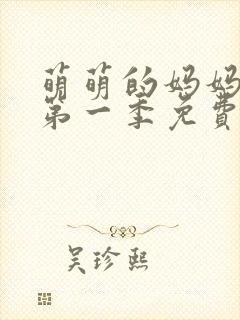 萌萌的妈妈
第一季免費
吴珍熙